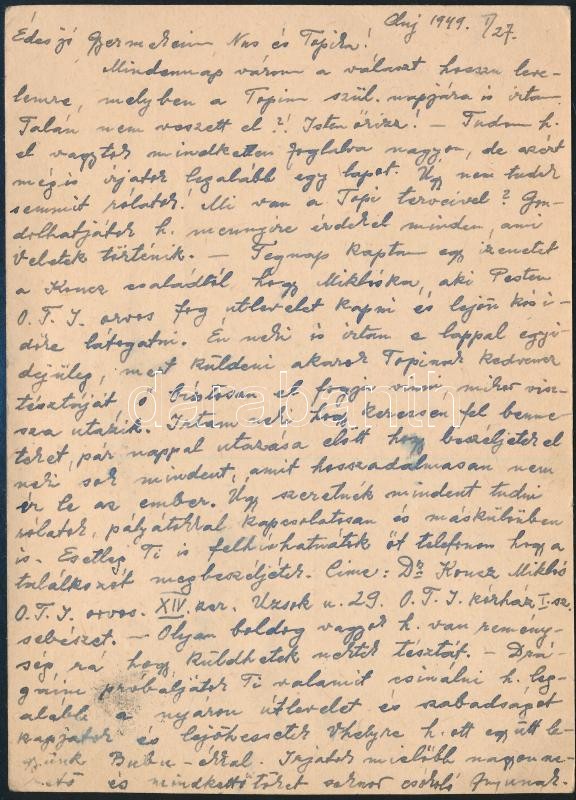 Cluj 1949. I/27.
Édes jó Gyermekeim, Nus és Topika!
Mindennap várom a választ hosszu leve-
lemre, melyben a Topim szül. napjára is irtam.
Talán nem veszett el?! Isten őrizz! - Tudom h.
el vagytok mindketten foglalva nagyon, de azért
mégis irjatok legalább egy lapot. Úgy nem tudok
semmit rólatok! Mi van a Topi terveivel? Gon-
dolhatjátok h. mennyire érdekel minden, ami
Veletek történik. - Tegnap kaptam egy izenetet
a Koncz családtól, hogy Miklóska, aki Pesten
O.T.I. orvos fog utlevelet kapni és lejön
ide látogatni. Én neki is irtam e lappal egyi-
dejüleg, mert küldeni akarok Topinak kedvenc
tésztáját ő biztosan el fogja vinni, mikor visz-
sza utazik. Irtam neki hogy keressen fel benne-
teket, pár nappal utazása előtt hogy beszéljetek el
neki sok mindent, amit hosszadalmasan nem
ir le az ember. Úgy szeretnék mindent tudni
rólatok, pályátokkal kapcsolatosan és máskülönben
is. Esetleg Ti is felhivhatnátok őt telefonon hogy a
találkozót megbeszéljétek. Cime: Dr Koncz Miklós
O.T.I. orvos. XIV. ker. Uzsok u. 29. O.T.I. kórház I. sz.
sebészet. - Olyan boldog vagyok h. van remény-
ség rá hogy küldhetek nektek tésztát. - Drá-
gáim próbáljátok Ti valamit csinálni h. leg-
alább a nyáron útlevelet és szabadságot
kapjatok és lejöhessetek Vhelyre h. ott együtt le-
gyünk Bubu-ékkal. Irjatok mielőbb nagyon
és mindkettőtöket sokszor csókoló Anyunak.
darabanth